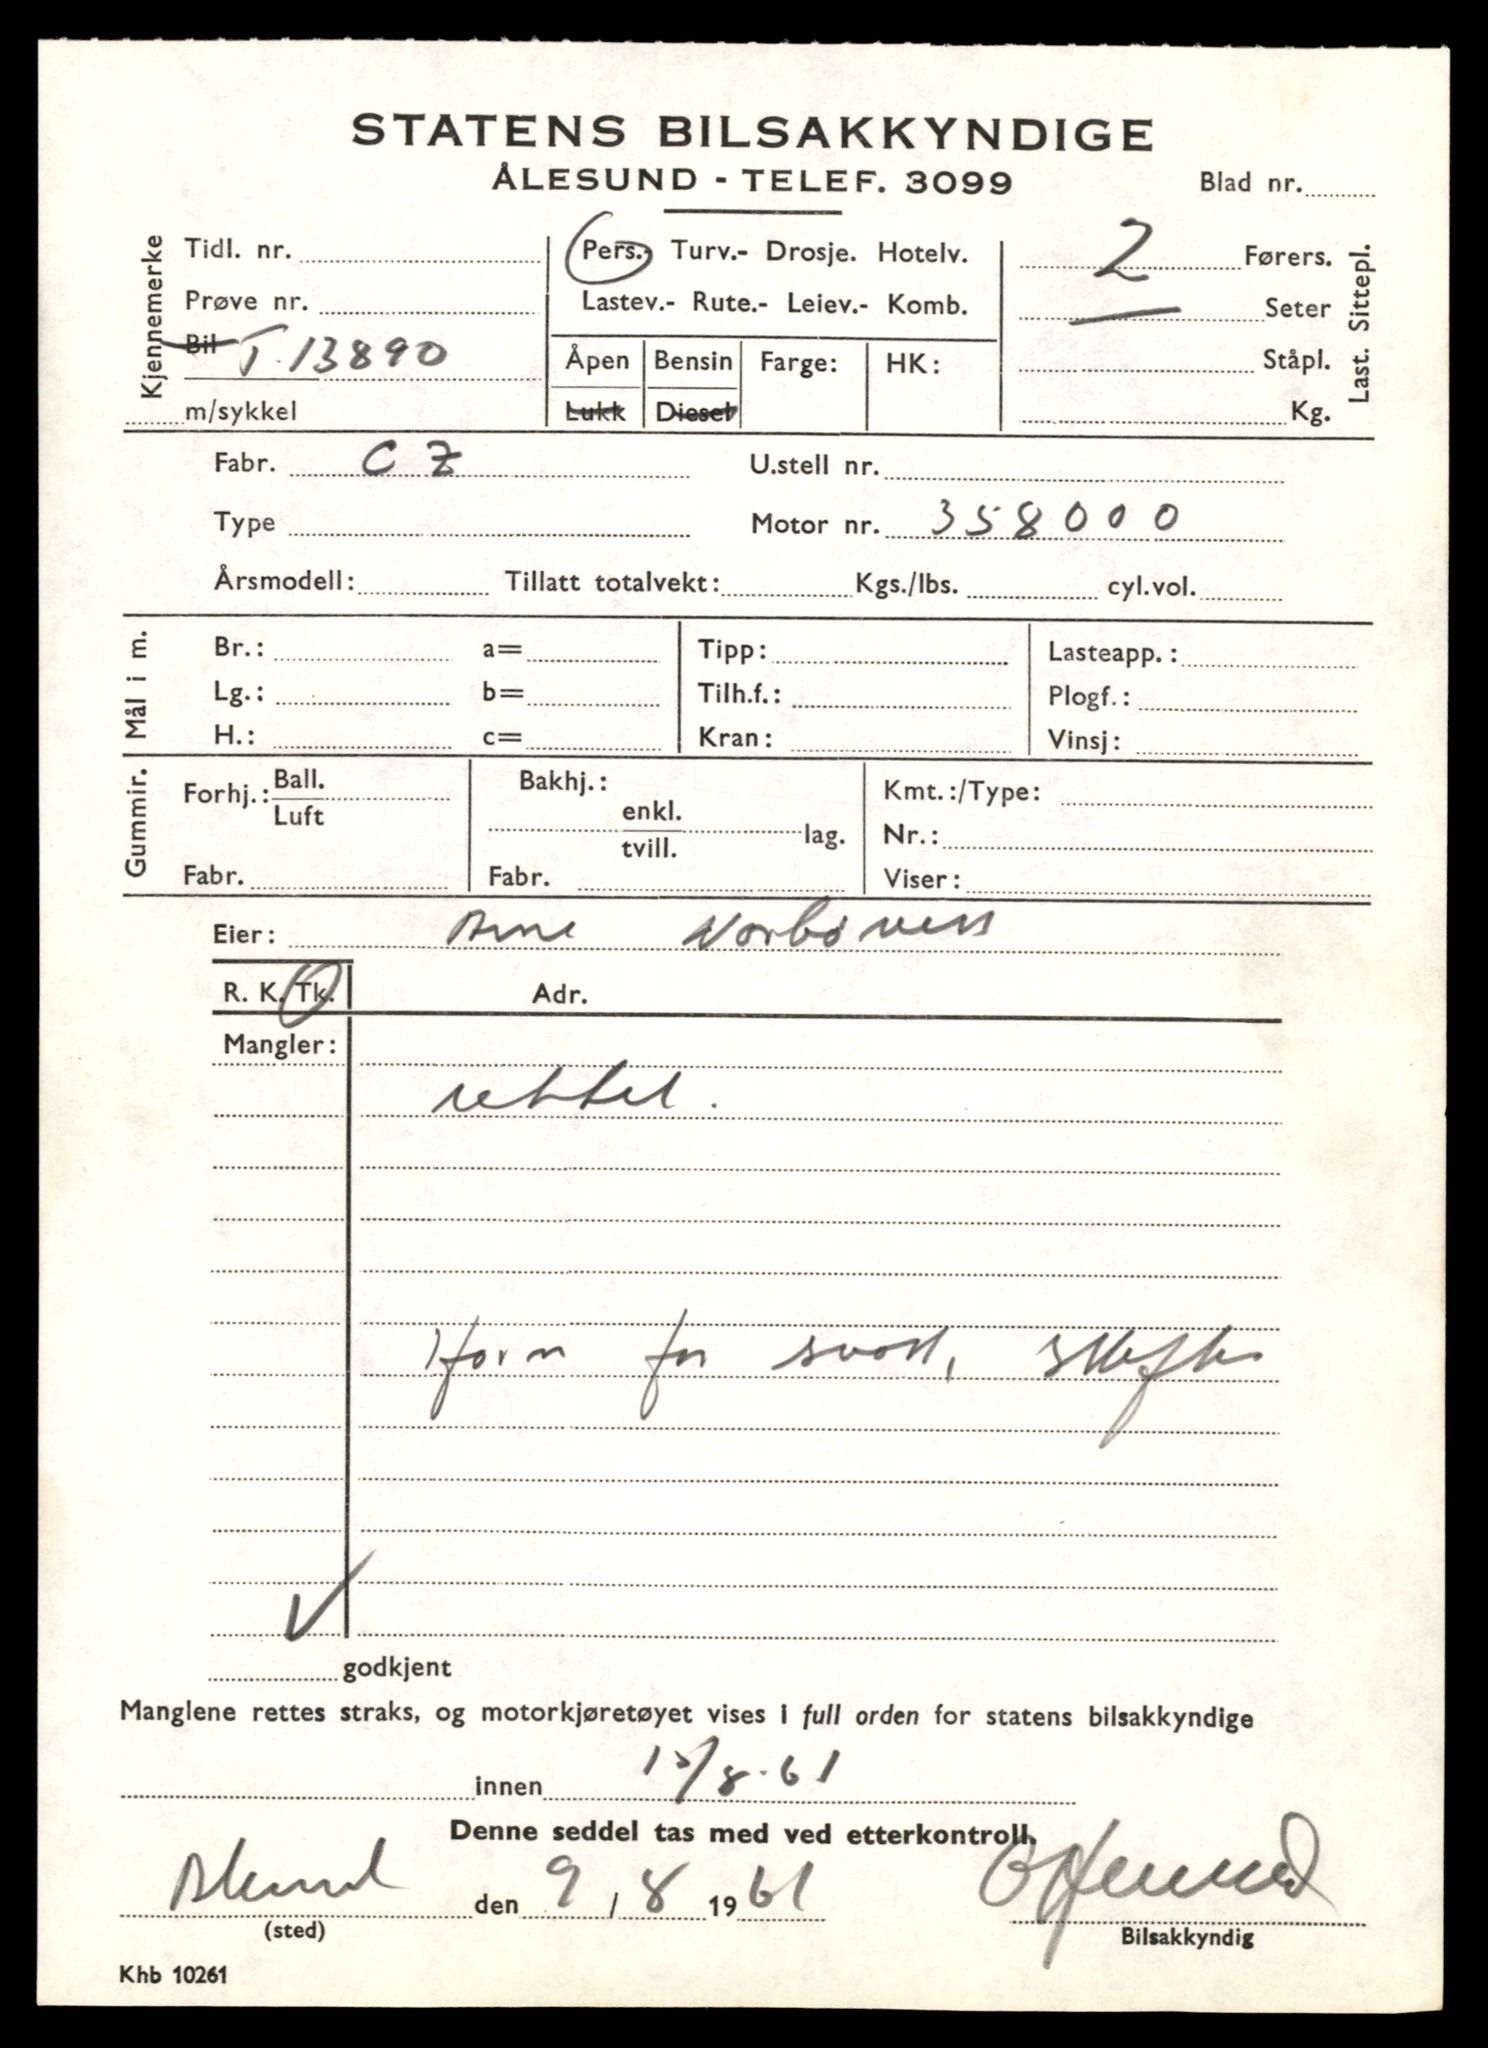 STATENS BILSAKKYNDIGE
ÅLESUND - TELEF. 3099
Blad nr.
Kjennemerke
Tidl. nr.
Prøve nr.
Bil T. 13890
m/sykkel
Pers.- Turv.- Drosje. Hotelv.
Lastev.- Rute.- Leiev.- Komb.
Åpen Bensin Farge: HK:
Lukk Diesel
2 Førers.
— Seter
Ståpl.
Kg.
Last. Sittepl.
Fabr. CZ U.stell nr.
Type Motor nr. 358000
Årsmodell: Tillatt totalvekt: Kgs./lbs. cyl.vol.
Mål i m.
Br.: a= Tipp: Lasteapp.:
Lg.: b= Tilh.f.: Plogf.:
H.: c= Kran: Vinsj:
Gummir.
Forhj.: Ball. Luft Bakhj.: enkl. tvill. lag. Kmt.:/Type:
Nr.:
Fabr. Fabr. Viser:
Eier: Arne
R. K. Tk. Adr.
Mangler:
rettet.
for svart,
godkjent
Manglene rettes straks, og motorkjøretøyet vises i full orden for statens bilsakkyndige
innen 15/8.61
Denne seddel tas med ved etterkontroll.
Ålesund den 9/8 1961
(sted) Bilsakkyndig
Khb 10261